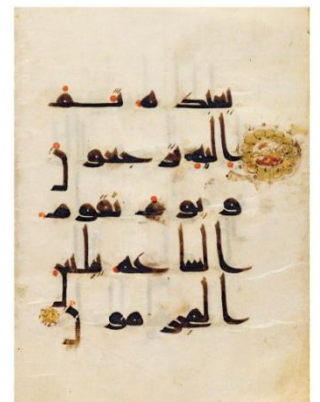 يعيده ثم
اليه ترجعون
ويوم تقوم
الساعة يبلس
المجرمون